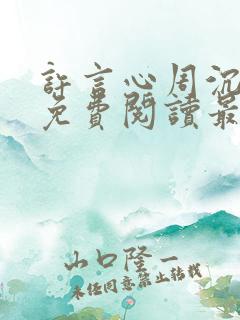 許言心周沉
免費閱讀最
山口隆一
未經同意禁止轉載